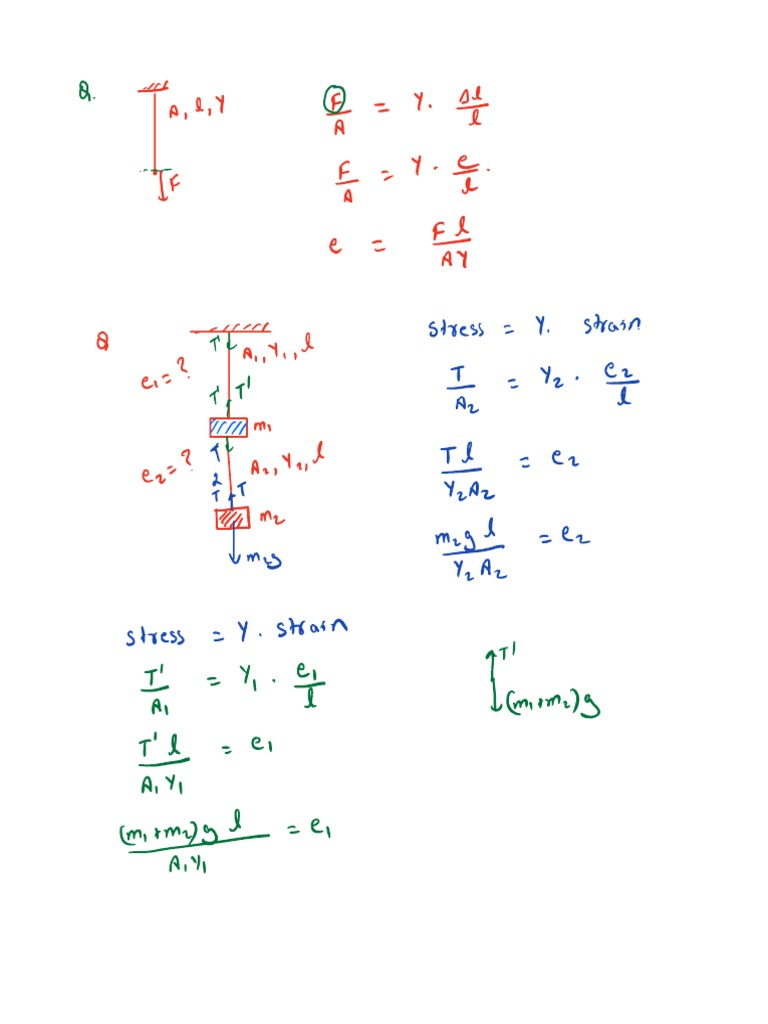 Q.
A, l, Y
F
F/A = Y. Δl/l
F/A = Y. e/l.
e = Fl/AY
Q
T'
A₁, Y₁, l
e₁ = ?
T' T'
m₁
T
e₂ = ?
A₂, Y₂, l
2
T T
m₂
m₂g
stress = Y. strain
T/A₂ = Y₂ . e₂/l
Tl/Y₂A₂ = e₂
m₂gl/Y₂A₂ = e₂
stress = Y. strain
T'/A₁ = Y₁ . e₁/l
T'l/A₁Y₁ = e₁
(m₁+m₂)gl/A₁Y₁ = e₁
T'
(m₁+m₂)g